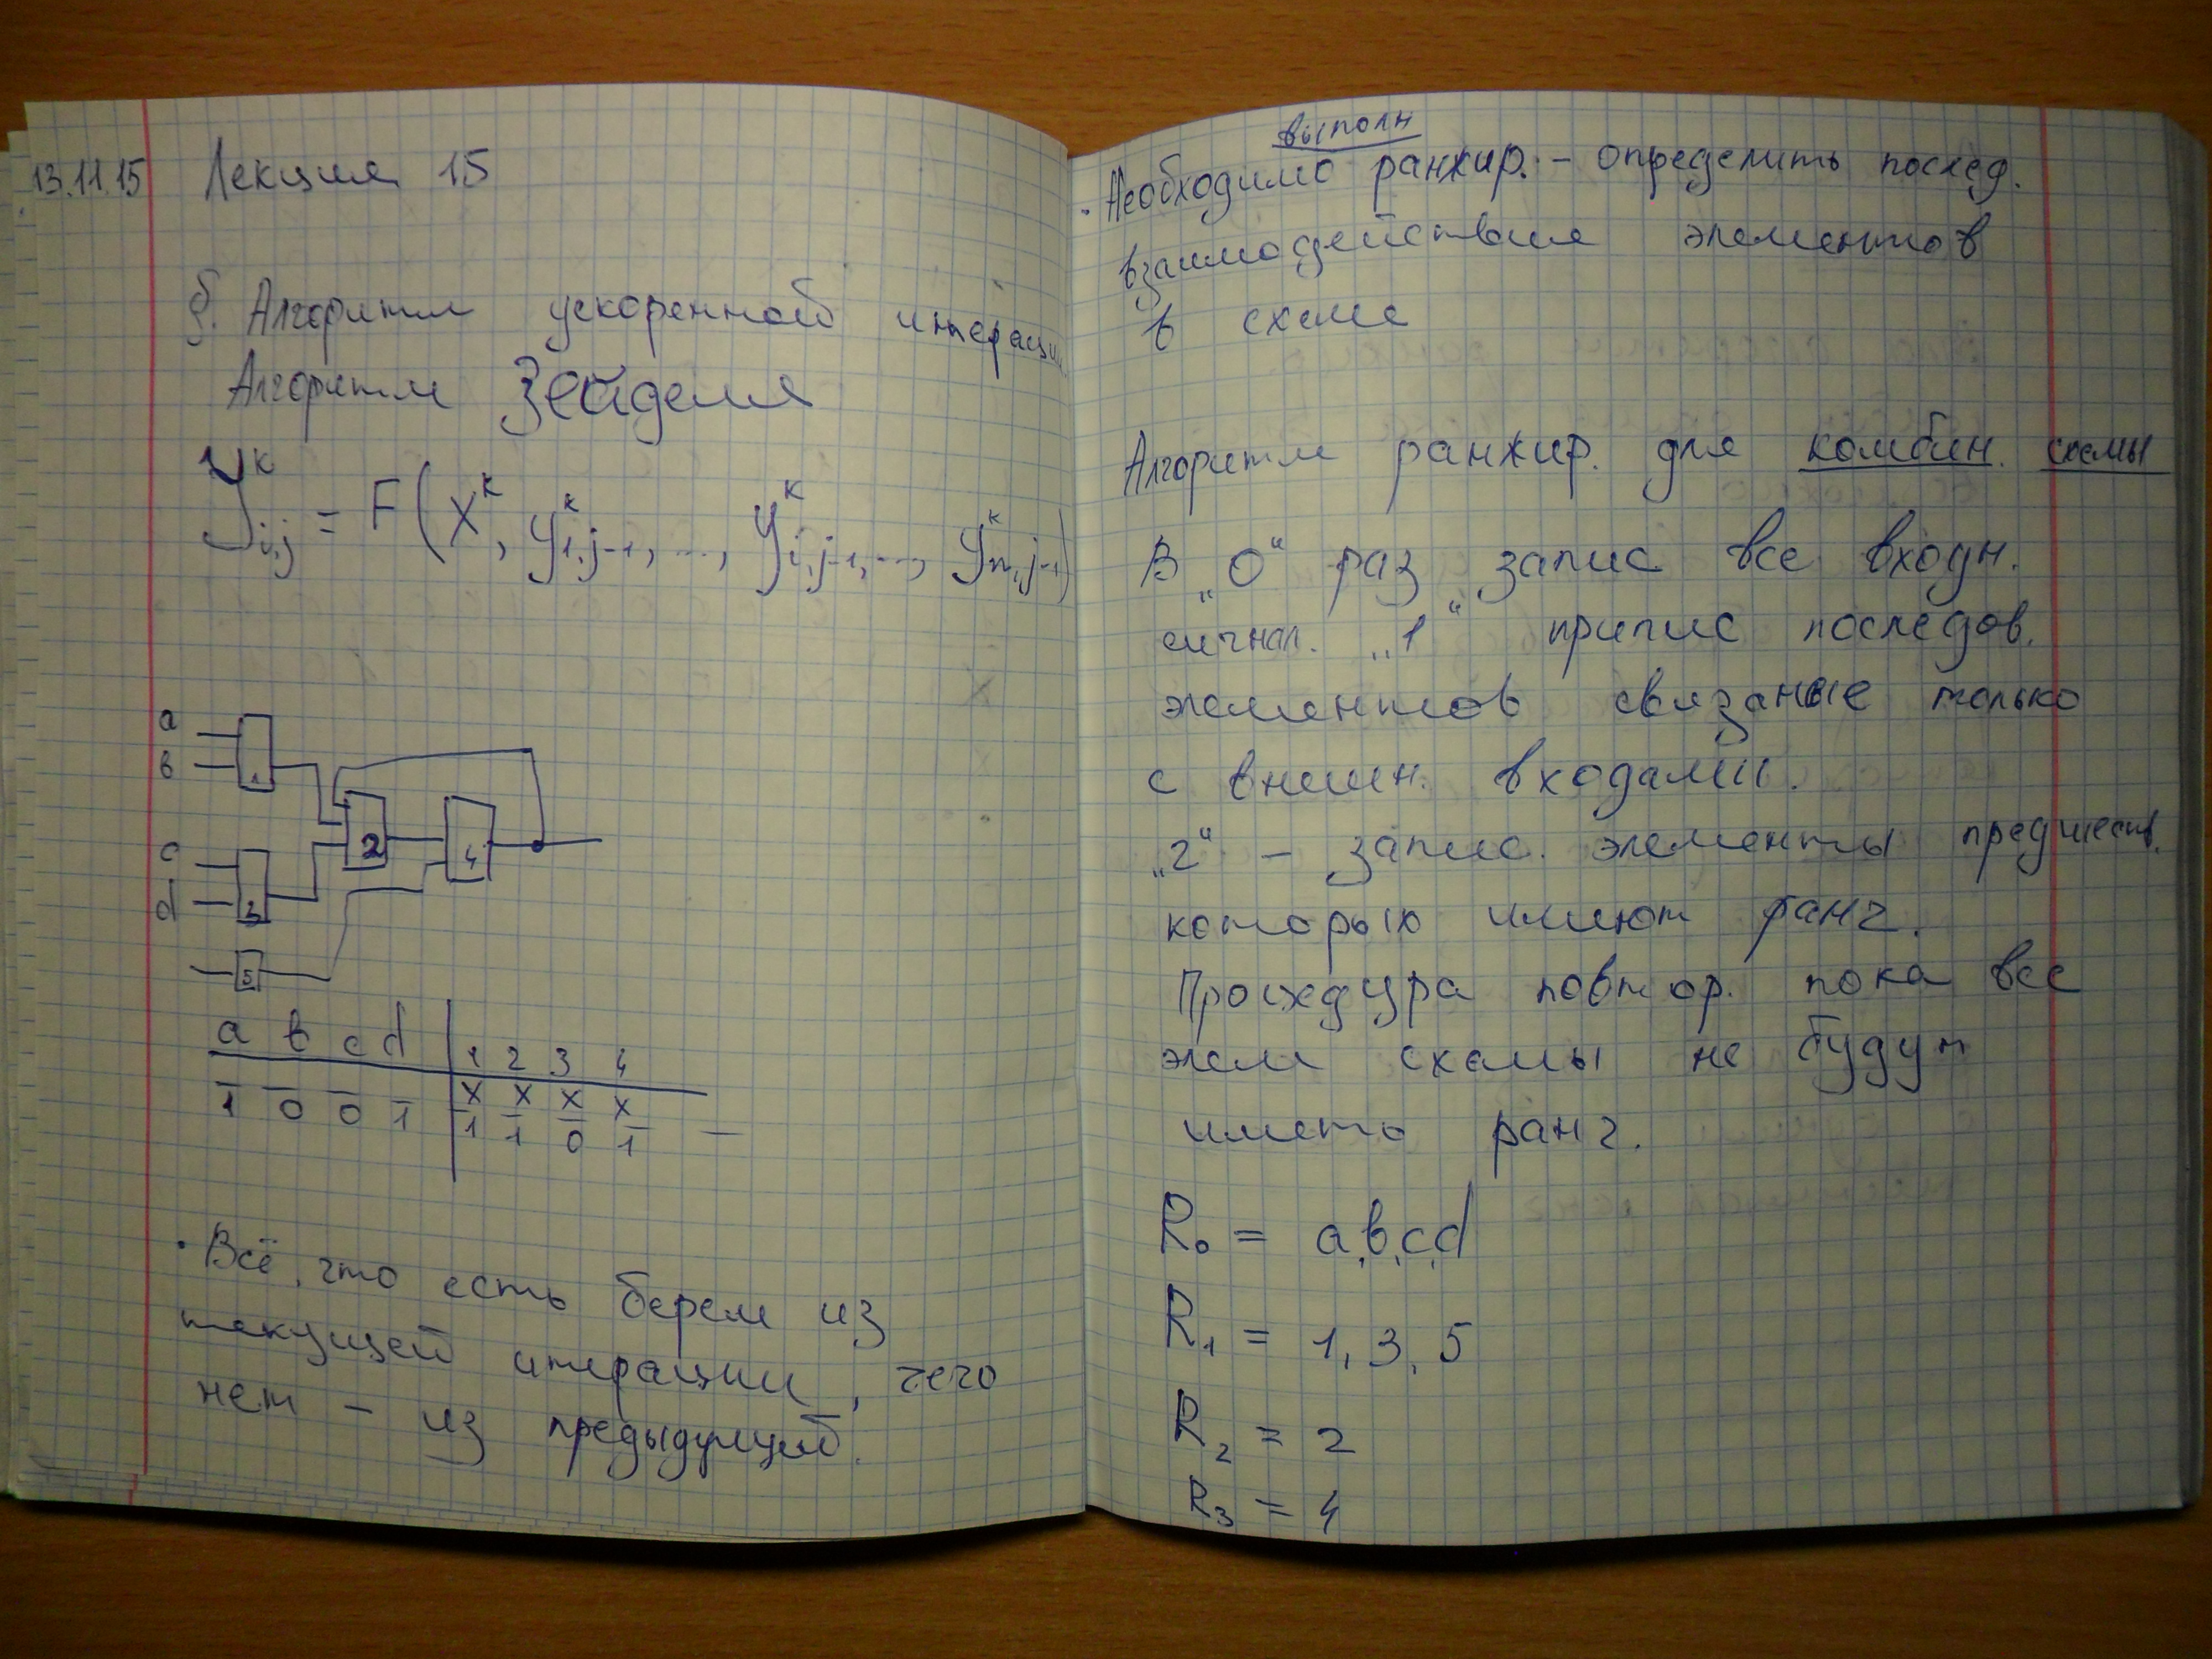 13.11.15 Лекция 15
б. Алгоритм ускоренной итерации
Алгоритм Зейделя
y^k_{i,j} = F(X^k, y^k_{1,j-1}, ..., y^k_{i,j-1}, ..., y^k_{n,j-1})
a
в
1
2
4
c
d
3
5
a в c d | 1 2 3 4
1 0 0 1 | x x x x
1 1 0 1
• Всё, что есть берем из
текущей итерации, чего
нет – из предыдущей.
выполн
• Необходимо ранжир. – определить послед.
взаимодействия элементов
в схеме
Алгоритм ранжир. для комбин. схемы
В „0“ раз запис все входн.
сигнал. „1“ припис последов.
элементов связаные только
с внешн. входами.
„2“ – запис. элементы предшеств.
которых имеют ранг.
Процедура повтор. пока все
элем схемы не будут
иметь ранг.
R₀ = a,b,c,d
R₁ = 1, 3, 5
R₂ = 2
R₃ = 4